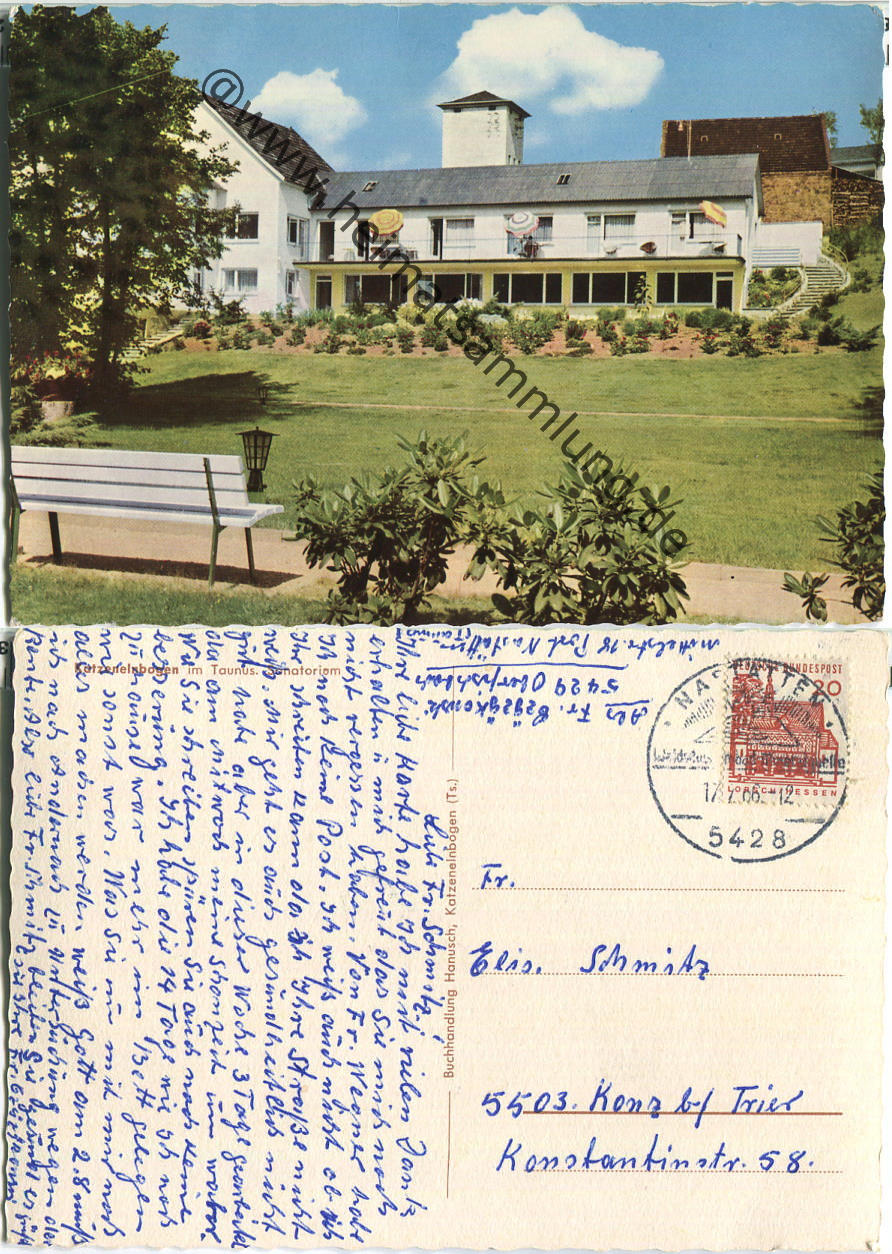 @www.heimatsammlung.de
Katzenelnbogen im Taunus. Sanatorium
Buchhandlung Hanusch, Katzenelnbogen (Ts.)
Abs Fr.
5429 Oberfischbach
Mittelstr. 18 Post Nastätten
(Taunus)
DEUTSCHE BUNDESPOST
20
LORSCH/HESSEN
NASTÄTTEN
17.7.66-12
5428
Fr.
Elis. Schmitz
5503. Konz b/ Trier
Konstantinstr. 58.
Lieb Fr. Schmitz!
Ihre liebe Karte habe ich mit vielen Dank
erhalten u mich gefreut das Sie mich noch
nicht vergessen haben. Von Fr. Wegner habe
ich noch keine Post. Ich weiß auch nicht ob ich
Ihr schreiben kann da ich Ihre Straße nicht
weiß. Mir geht es auch gesundheitlich nicht
gut habe aber in dieser Woche 3 Tage gearbeitet
da am Mittwoch meine Schonzeit um war.
Wie Sie schreiben spüren Sie auch noch keine
besserung. Ich habe die 14 Tage wie ich noch
zu hause war mehr im Bett gelegen
wie sonst was. Was Sie nu mit mir noch
alles machen werden weiß Gott am 2.8 muß
ich nach Andernach zu Untersuchung wegen der
Rente. Aber lieb Fr. Schmitz